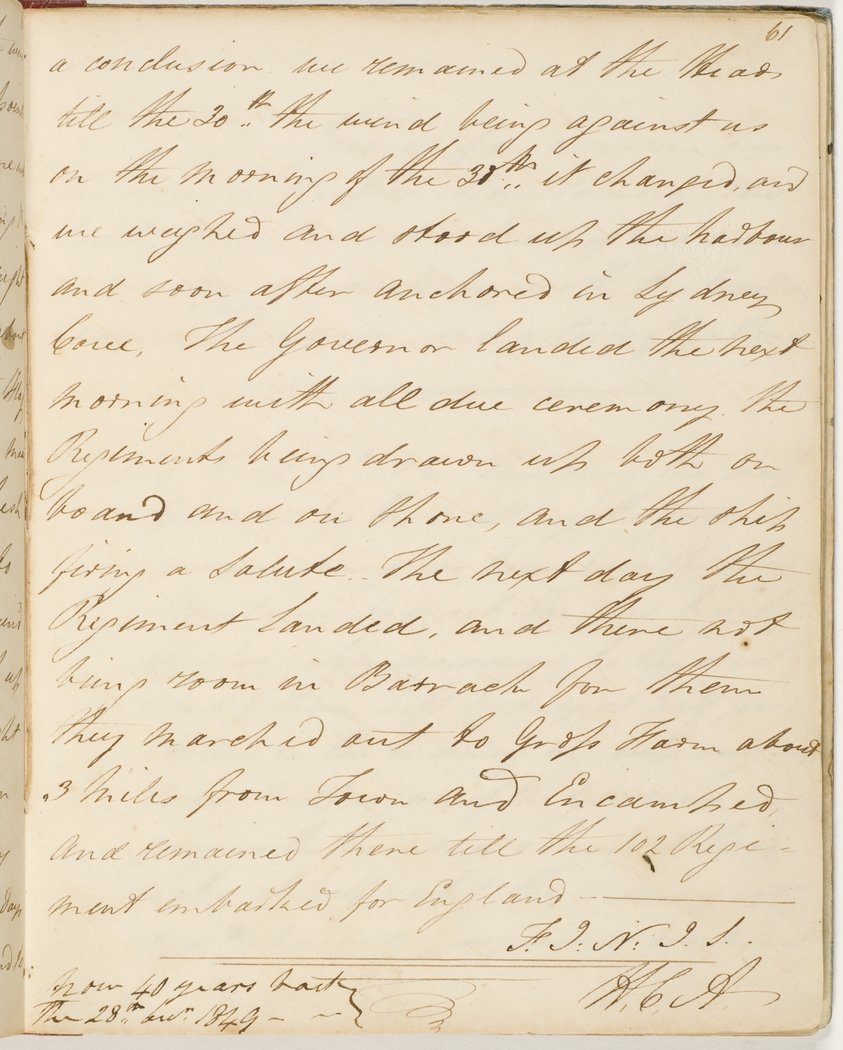 61
a conclusion we remained at the Heads
till the 30th the wind being against us
on the morning of the 30th it changed, and
we weighed and stood up the harbour
and soon after anchored in Sydney
Cove, The Governor landed the next
morning with all due ceremony the
Regiments being drawn up both on
board and on shore, and the ship
firing a Salute. The next day the
Regiment Landed, and there not
being room in Barrack for them
they marched out to Gross Farm about
3 Miles from Town and Encamped,
and remained there till the 102 Regi-
ment embarked for England
F. I. N. I. S.
H. C. A.
now 40 years back
The 28th 1849